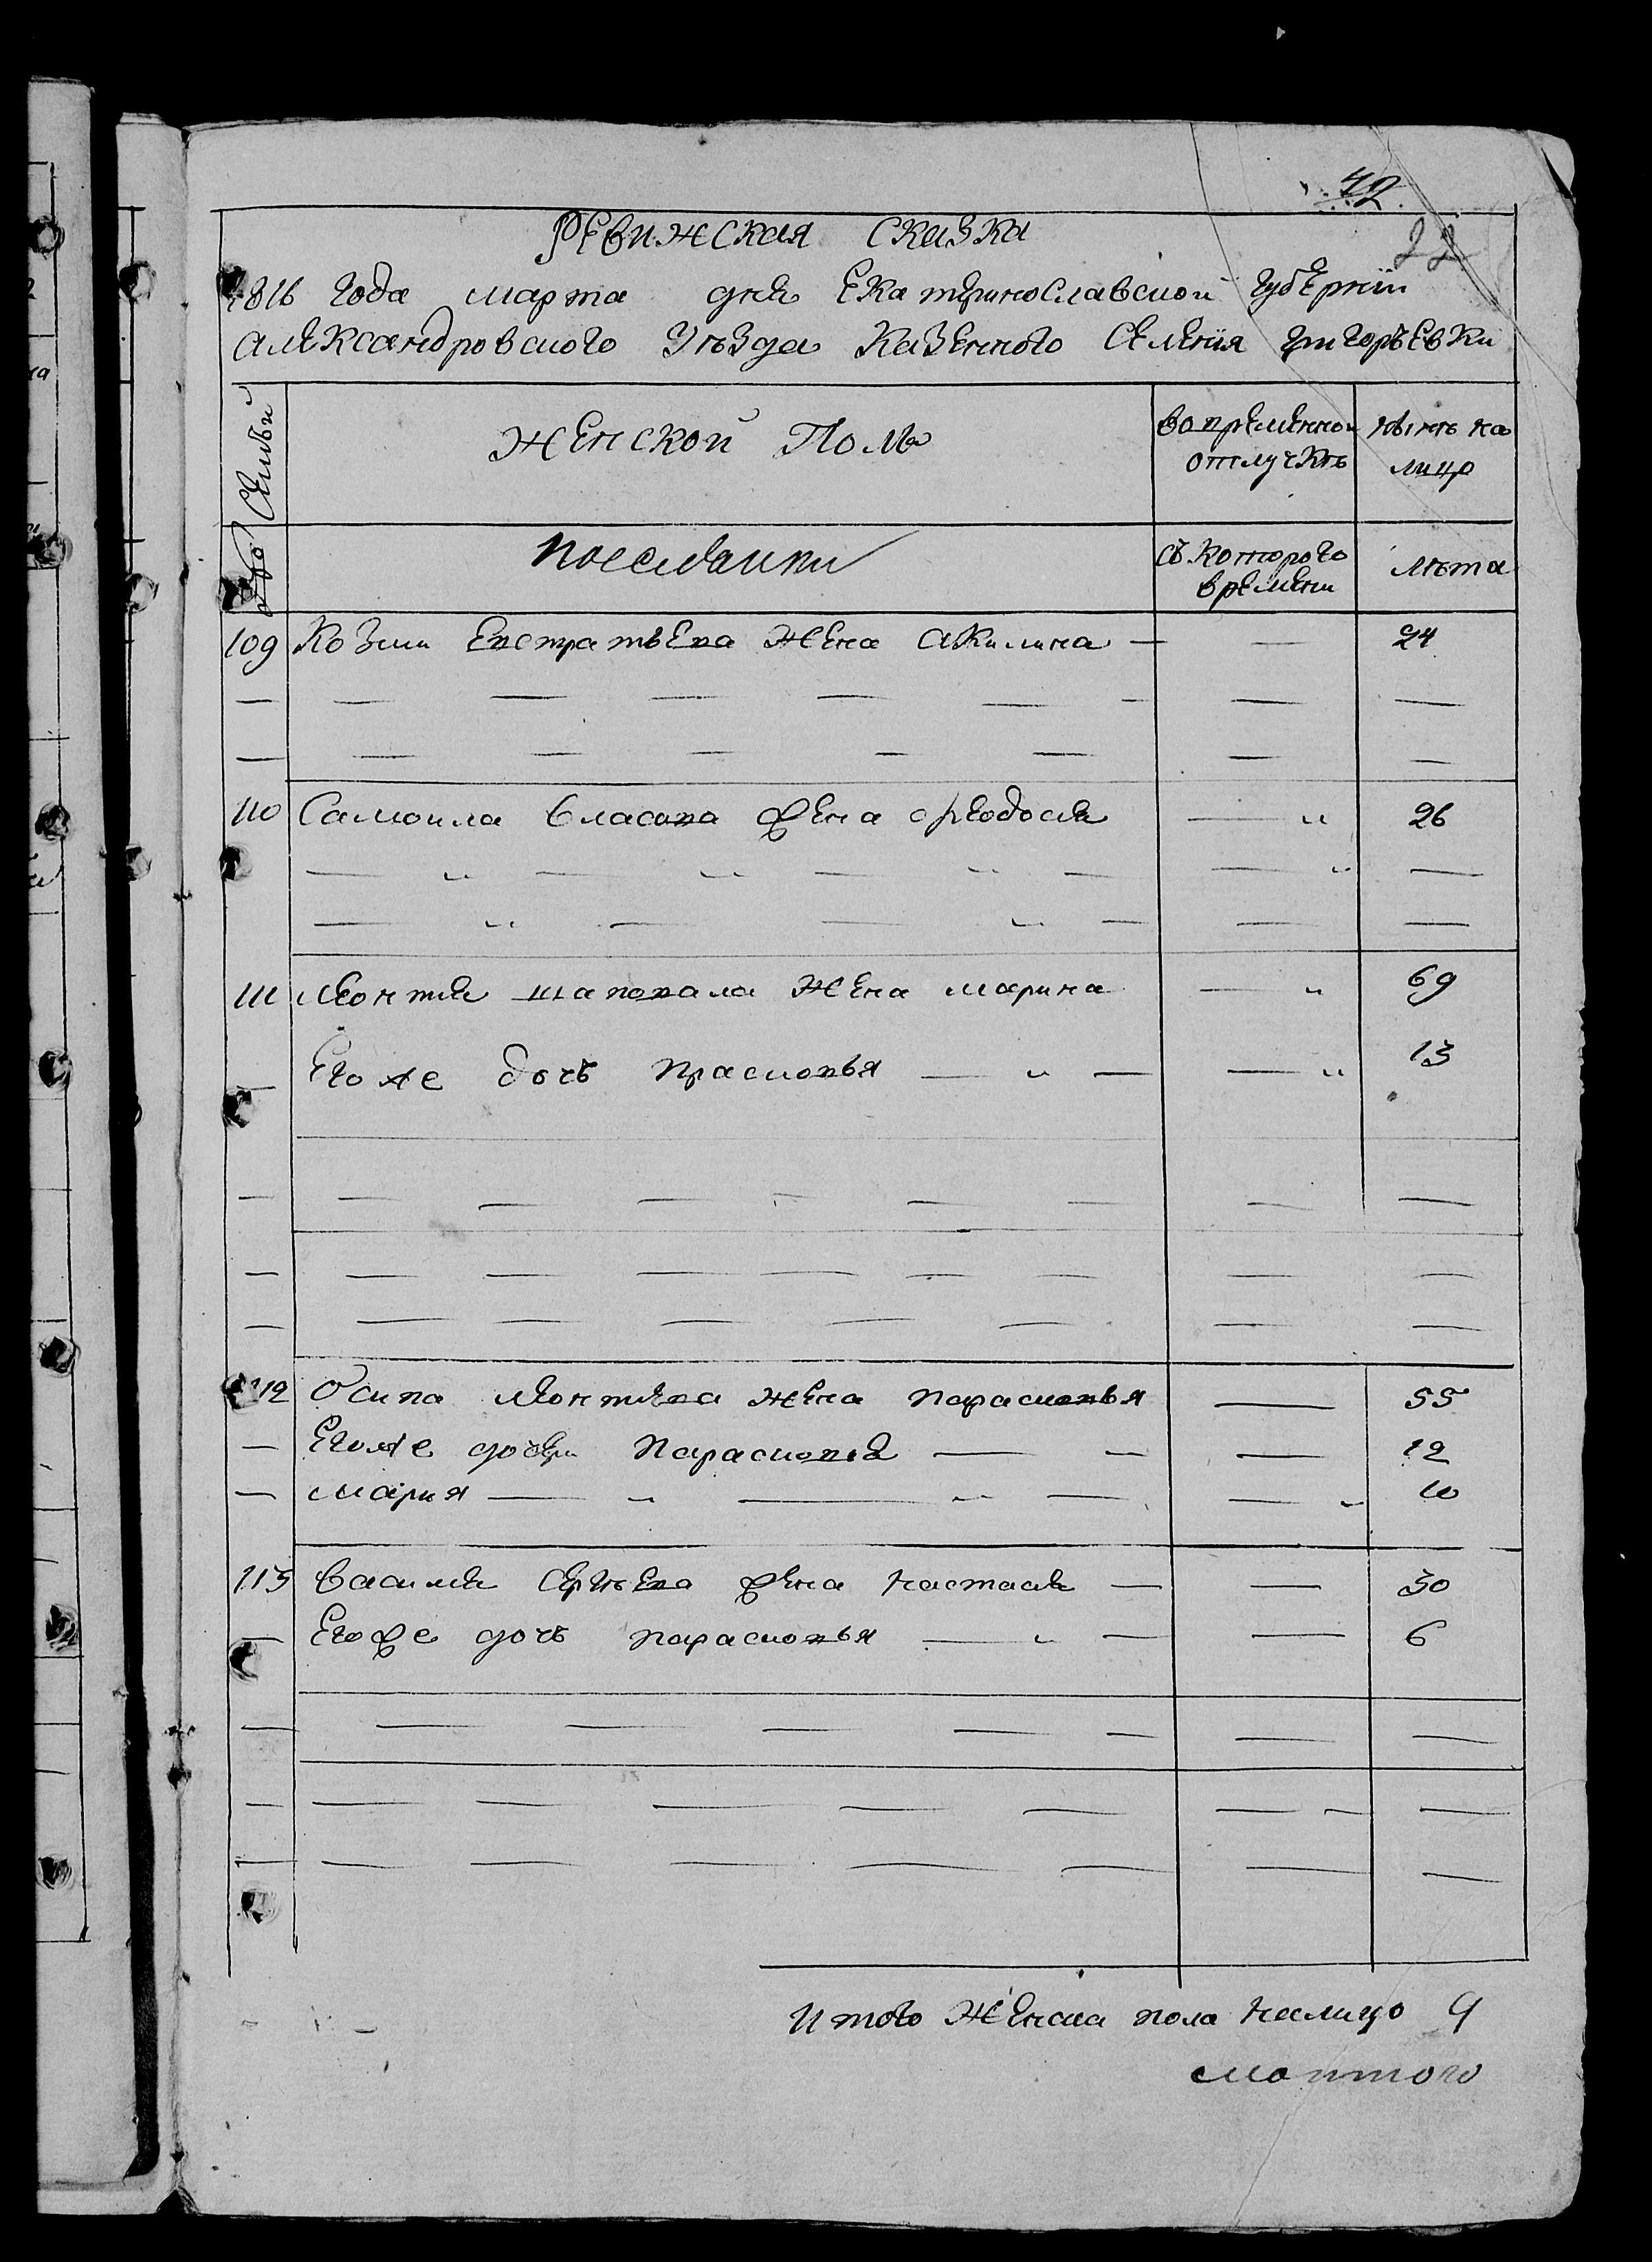 42
22
Ревижская сказка
1816 года марта дня Екатеринославской губернии
Александровского уезда казенного селения Григорьевки
Семьи
Женской Полъ
во временной отлучкѣ
нынѣ на лицо
поселянки
съ которого времени
лѣта
109 Козми Евстратьева жена Акилина — — 24
110 Самоила Власова жена Феодосия — " 26
111 Леонтия Шаповала жена Марина — " 69
— Его же дочь Прасковья — " — — " 13
112 Осипа Леонтиева жена Парасковья — 55
— Егоже дочери Парасковия — — — 12
— Мария — " — " — — " 10
113 Василия Сергѣева жена Настасия — — 30
— Егоже дочь Парасковья — " — — 6
Итого женска пола налицо 9